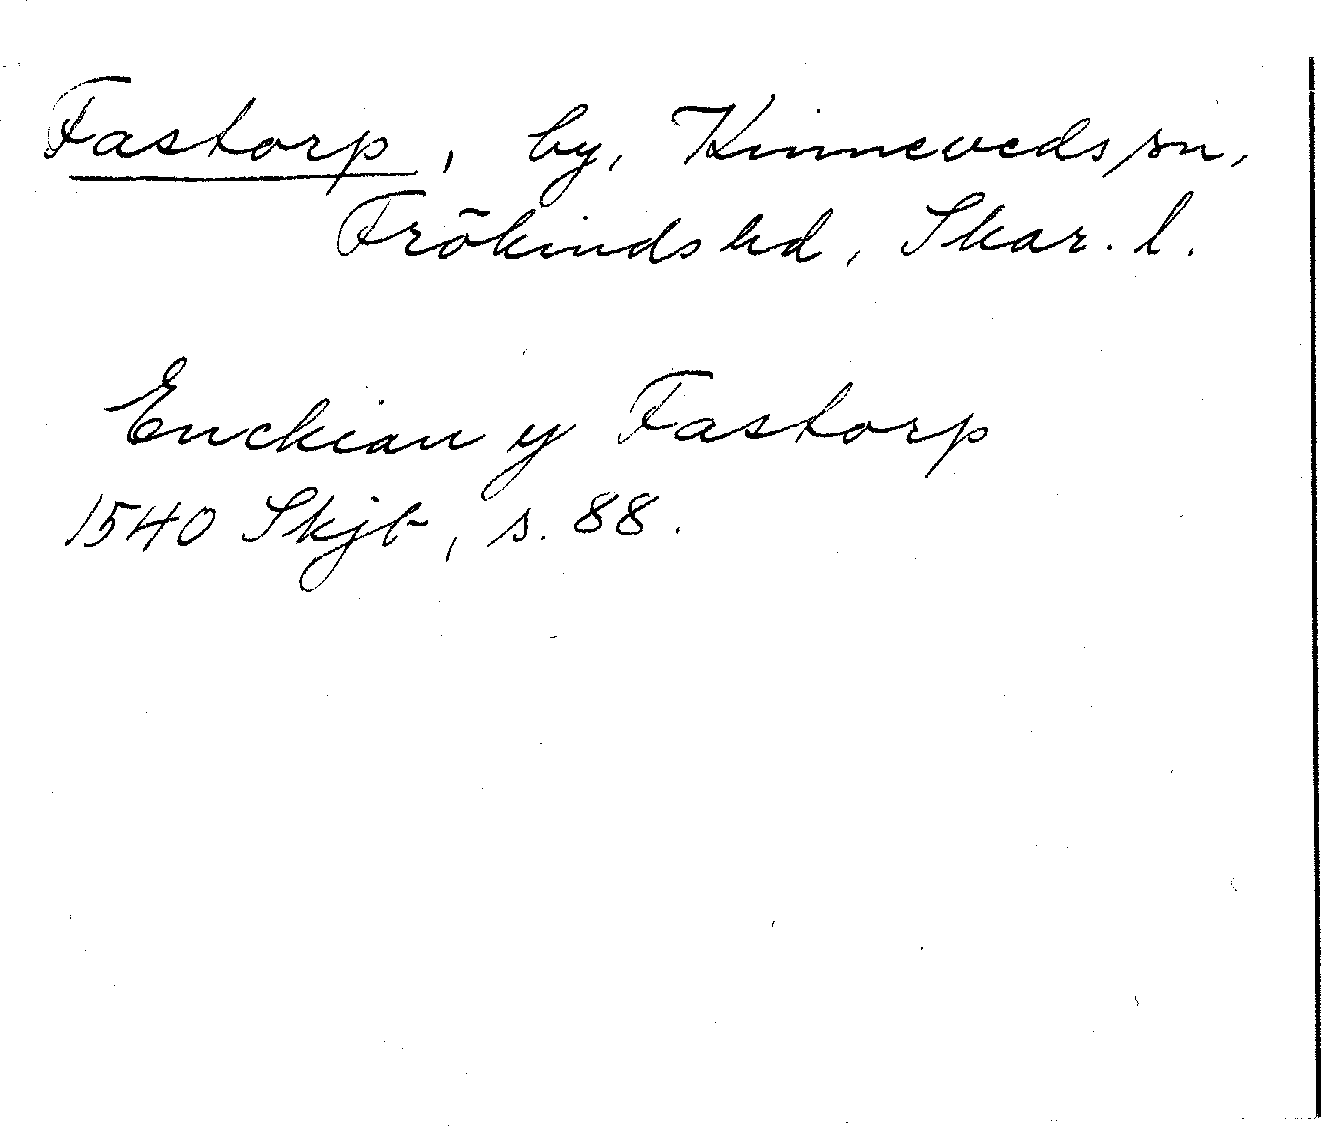 Fastorp, by, Kinneveds sn,
Frökinds hd, Skar. l.
Enckian y Fastorp
1540 Skjb, s. 88.